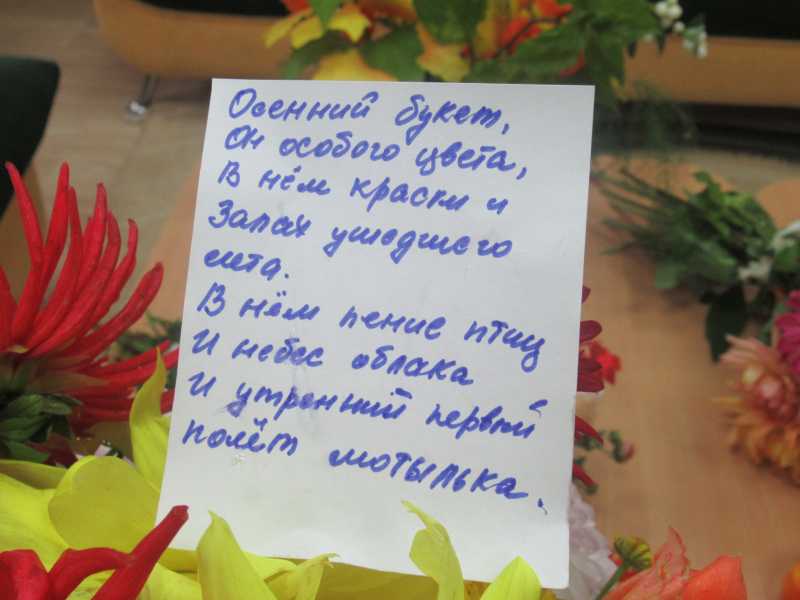 Осенний букет,
Он особого цвета,
В нём краски и
Запах ушедшего
лета.
В нём пение птиц
И небес облака
И утренний первый
полёт мотылька.